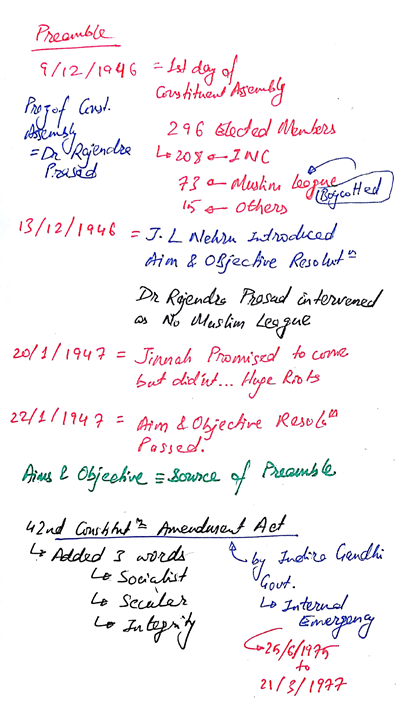 Preamble
9/12/1946 = 1st day of
Constituent Assembly
Prez of Const.
Assembly
= Dr Rajendra
Prasad
296 Elected Members
↳ 208 ← INC
73 ← Muslim League
Boycotted
15 ← Others
13/12/1946 = J.L Nehru Introduced
Aim & Objective Resolutⁿ
Dr Rajendra Prasad intervened
as No Muslim League
20/1/1947 = Jinnah Promised to come
but didn't... Huge Riots
22/1/1947 = Aim & Objective Resolⁿ
Passed.
Aims & Objective ≡ Source of Preamble
42nd Constitutⁿ Amendment Act
↳ Added 3 words
↳ Socialist
↳ Secular
↳ Integrity
by Indira Gandhi
Govt.
↳ Internal
Emergency
25/6/1975
to
21/3/1977